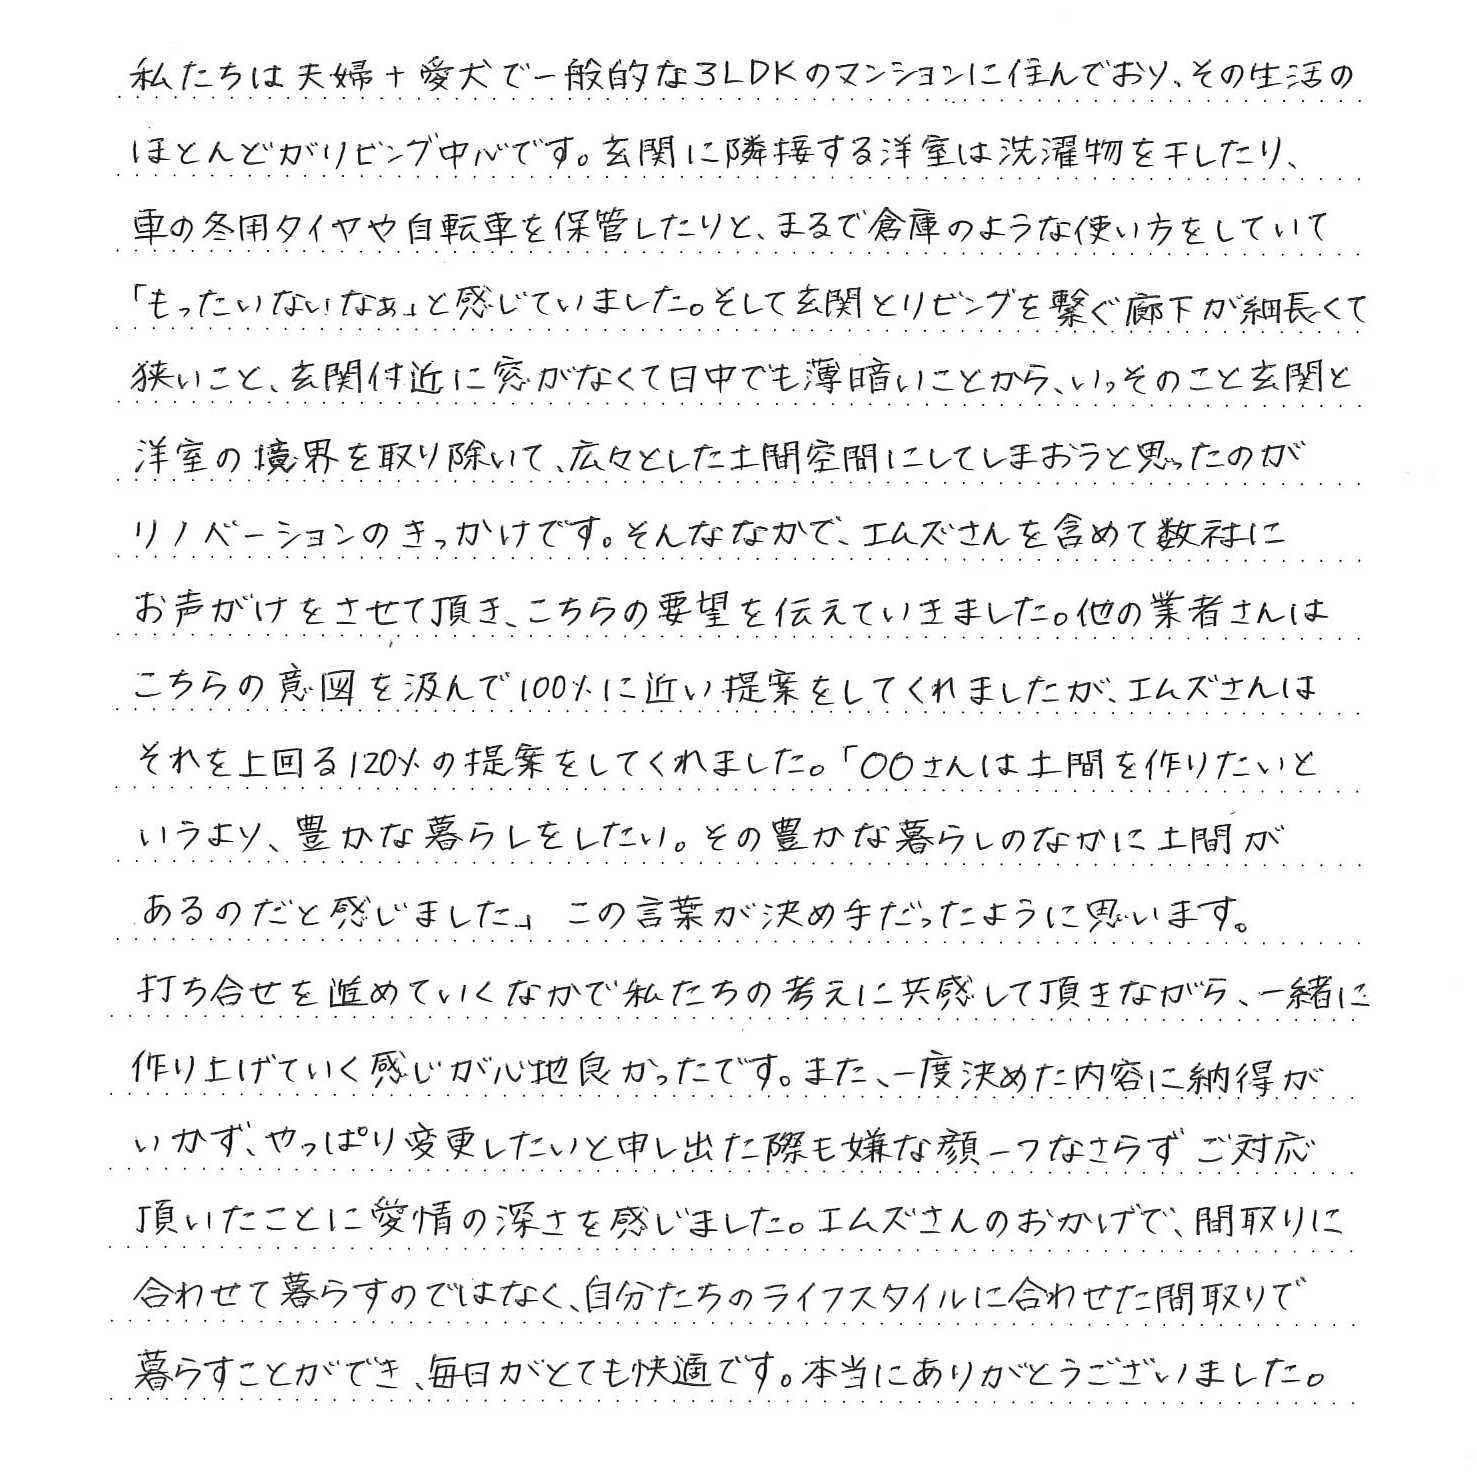 私たちは夫婦+愛犬で一般的な3LDKのマンションに住んでおり、その生活の
ほとんどがリビング中心です。玄関に隣接する洋室は洗濯物を干したり、
車の冬用タイヤや自転車を保管したりと、まるで倉庫のような使い方をしていて
「もったいないなぁ」と感じていました。そして玄関とリビングを繋ぐ廊下が細長くて
狭いこと、玄関付近に窓がなくて日中でも薄暗いことから、いっそのこと玄関と
洋室の境界を取り除いて、広々とした土間空間にしてしまおうと思ったのが
リノベーションのきっかけです。そんななかで、エムズさんを含めて数社に
お声がけをさせて頂き、こちらの要望を伝えていきました。他の業者さんは
こちらの意図を汲んで100%に近い提案をしてくれましたが、エムズさんは
それを上回る120%の提案をしてくれました。「〇〇さんは土間を作りたいと
いうより、豊かな暮らしをしたい。その豊かな暮らしのなかに土間が
あるのだと感じました」 この言葉が決め手だったように思います。
打ち合せを進めていくなかで私たちの考えに共感して頂きながら、一緒に
作り上げていく感じが心地良かったです。また、一度決めた内容に納得が
いかず、やっぱり変更したいと申し出た際も嫌な顔一つなさらずご対応
頂いたことに愛情の深さを感じました。エムズさんのおかげで、間取りに
合わせて暮らすのではなく、自分たちのライフスタイルに合わせた間取りで
暮らすことができ、毎日がとても快適です。本当にありがとうございました。